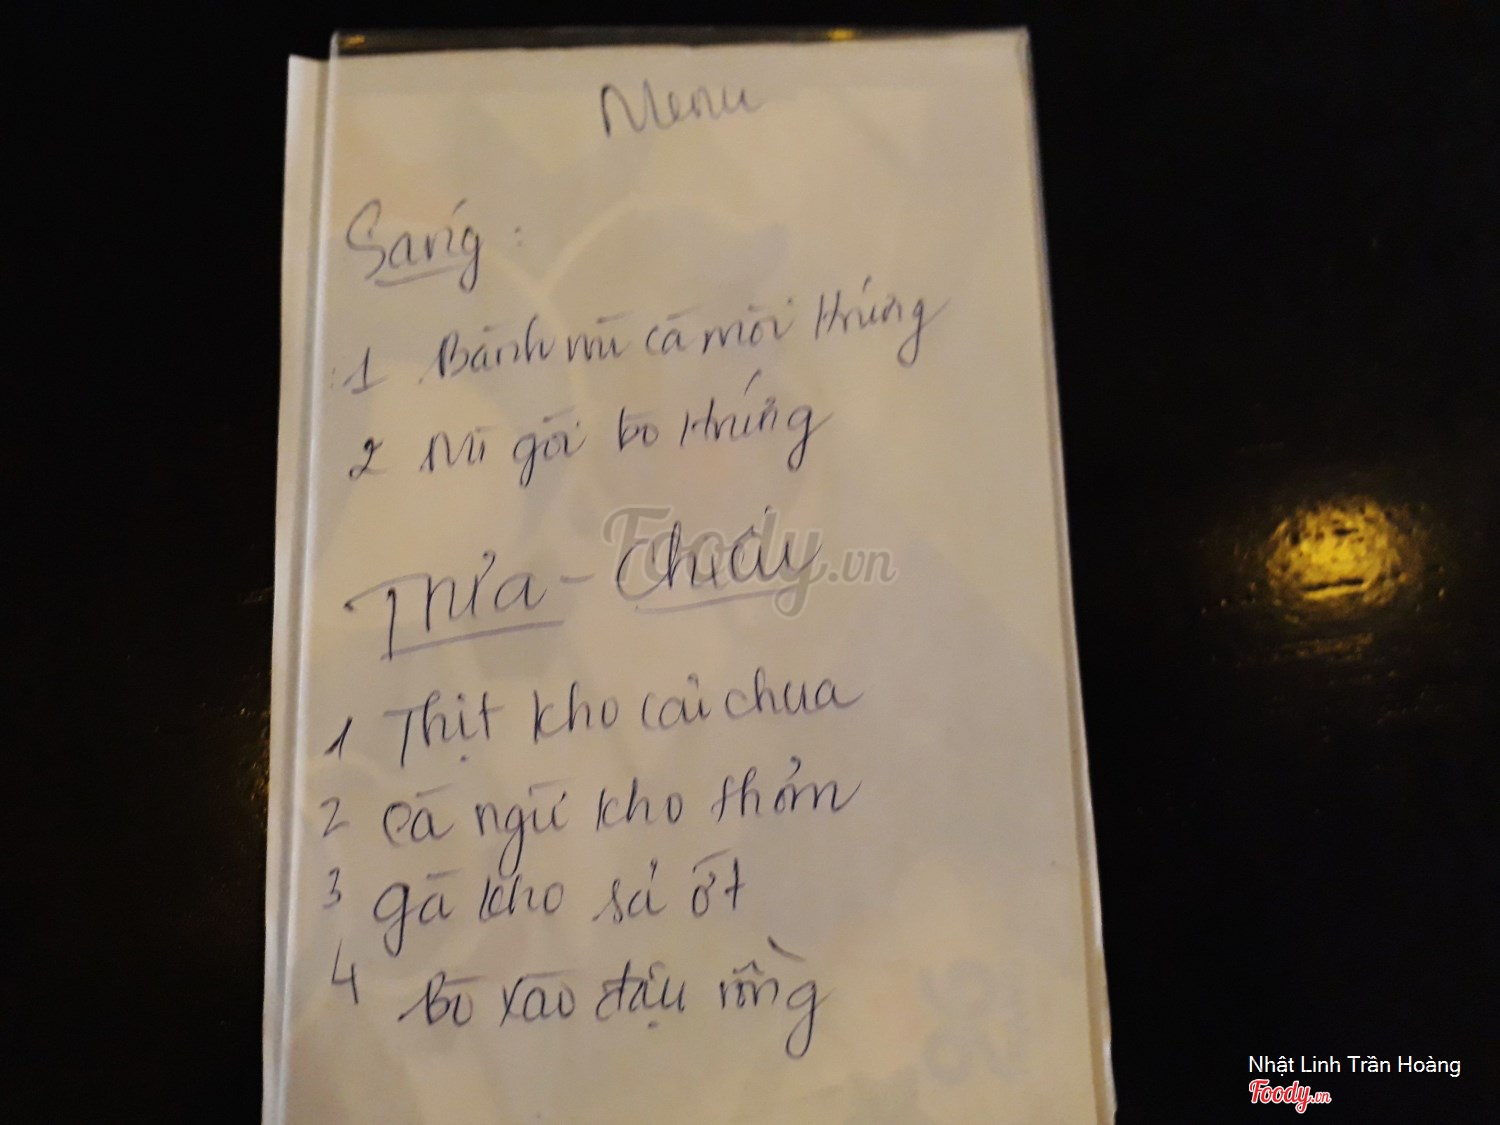 Menu
Sáng :
1 Bánh mì cá mòi trứng
2 Mì gói bò trứng
Foody.vn
Trưa - Chiều
1 Thịt kho cải chua
2 Cá ngừ kho thơm
3 gà kho sả ớt
4 Bò xào đậu rồng
Nhật Linh Trần Hoàng
Foody.vn